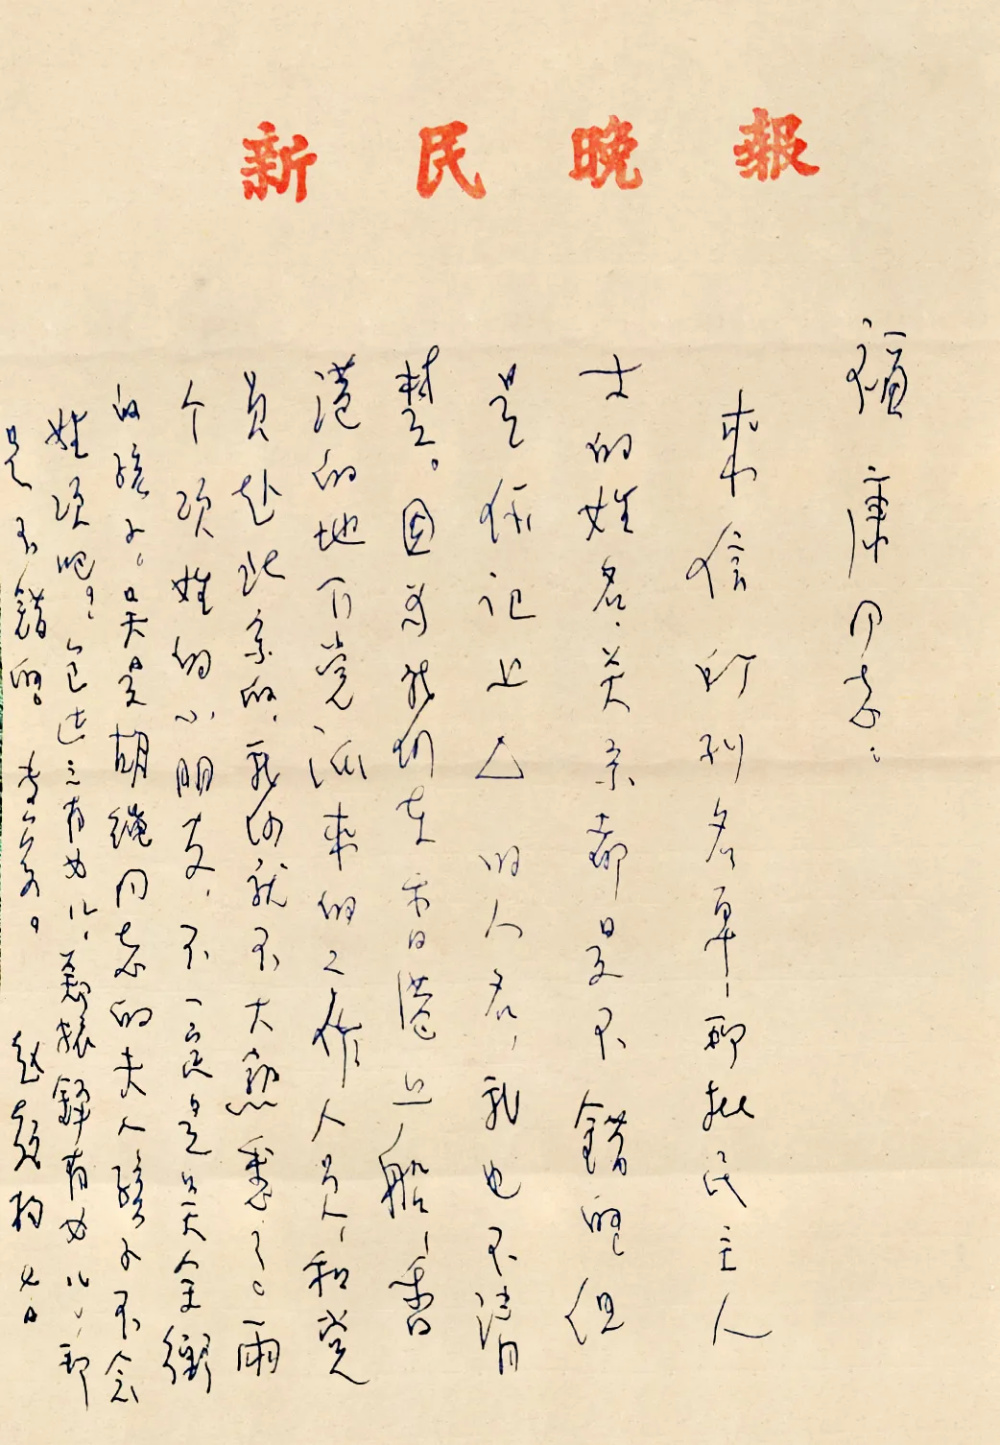 新民晚報
康同志：
来信所列名单，那批民主人
士的姓名、关系都是不错的，但
是你记上△的人名，我也不清
楚。因为我们在香港上船，香
港的地下党派来的工作人员，和党
员的，我们就不大熟悉了。两
个项姓的小朋友，不一定是吴全衡
的孩子。吴是胡绳同志的夫人，孩子不会
姓项吧？包达三有女儿，郑振铎有女儿，那
是不错的。赵超构